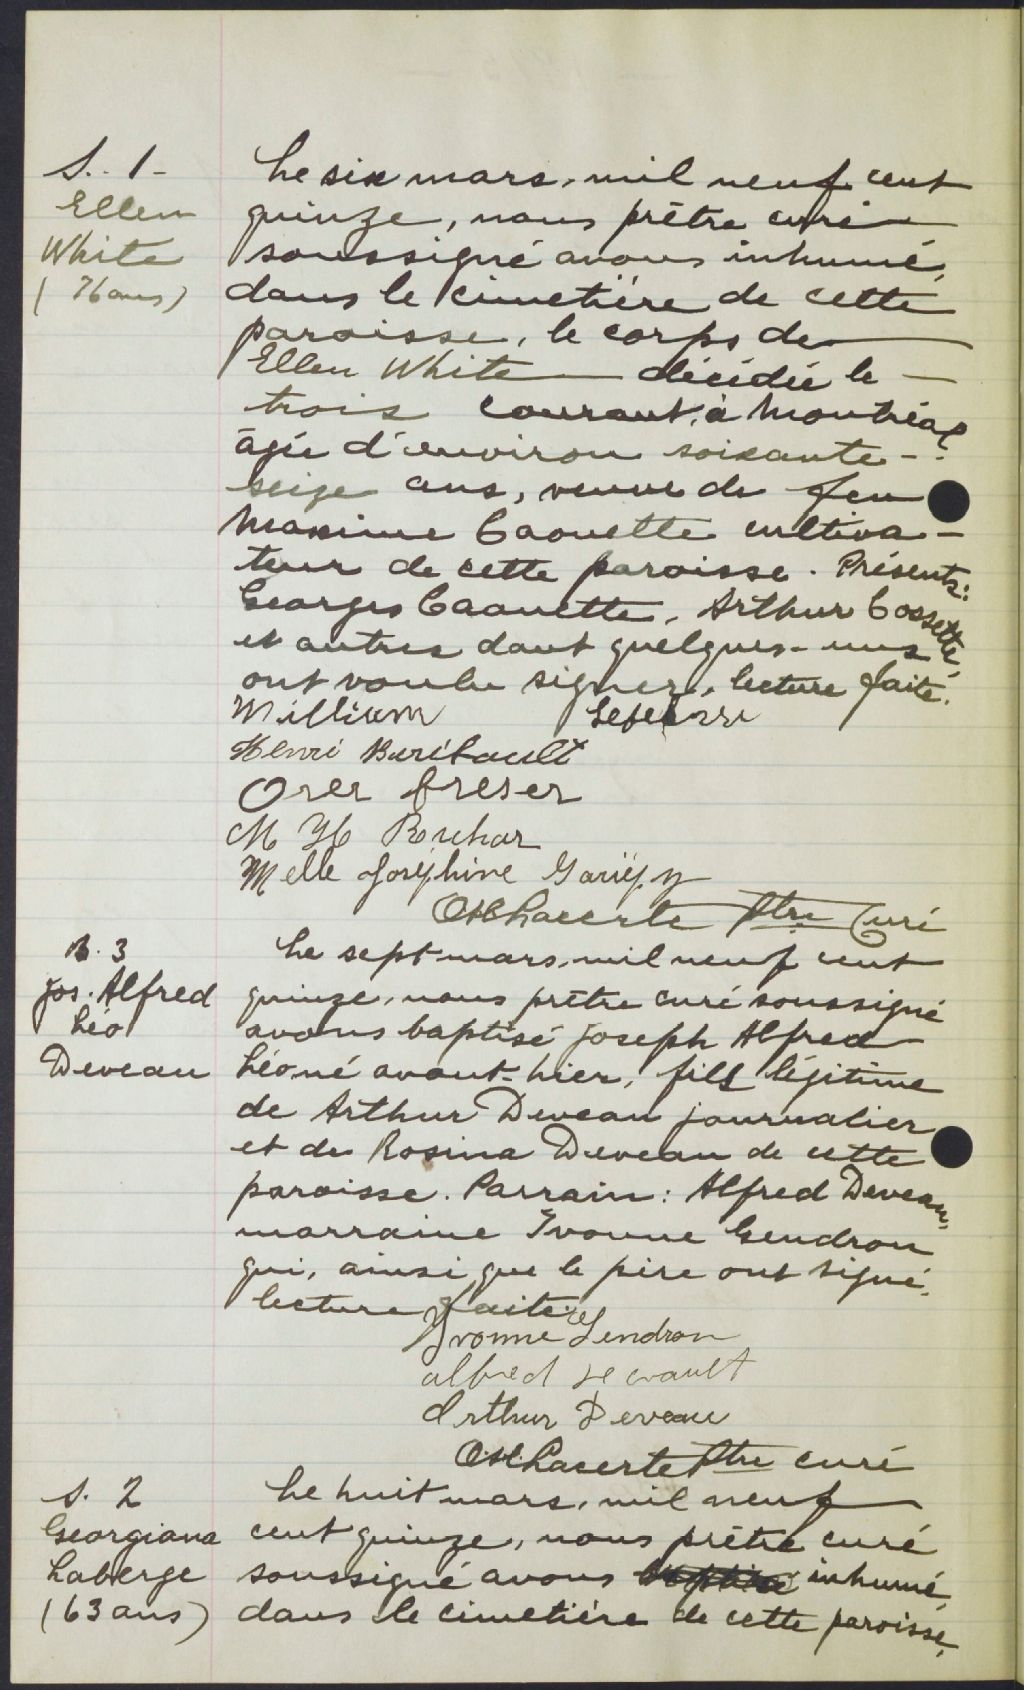 S. 1 -
Ellen
White
( 76 ans )
Le six mars, mil neuf cent
quinze, nous prêtre curé
soussigné avons inhumé,
dans le cimetière de cette
paroisse, le corps de
Ellen White décédée le
trois courant, à Montréal
âgée d'environ soixante-
seize ans, veuve de feu
Maxime Caouette cultiva-
teur de cette paroisse. Présents:
Georges Caouette, Arthur Cossette,
et autres dont quelques-uns
ont voulu signer, lecture faite.
William Lefebvre
Henri Baribault
M H
Melle Joséphine Gariépy
Lacerte Ptre Curé
B. 3
Jos. Alfred
Léo
Deveau
Le sept mars, mil neuf cent
quinze, nous prêtre curé soussigné
avons baptisé Joseph Alfred
Léo né avant-hier, fils légitime
de Arthur Deveau journalier
et de Rosina Deveau de cette
paroisse. Parrain: Alfred Deveau,
marraine Yvonne Gendron
qui, ainsi que le père ont signé,
lecture faite.
Yvonne Gendron
alfred
Arthur Deveau
Lacerte Ptre curé
S. 2
Georgiana
Laberge
(63 ans)
Le huit mars, mil neuf
cent quinze, nous prêtre curé
soussigné avons inhumé,
dans le cimetière de cette paroisse,